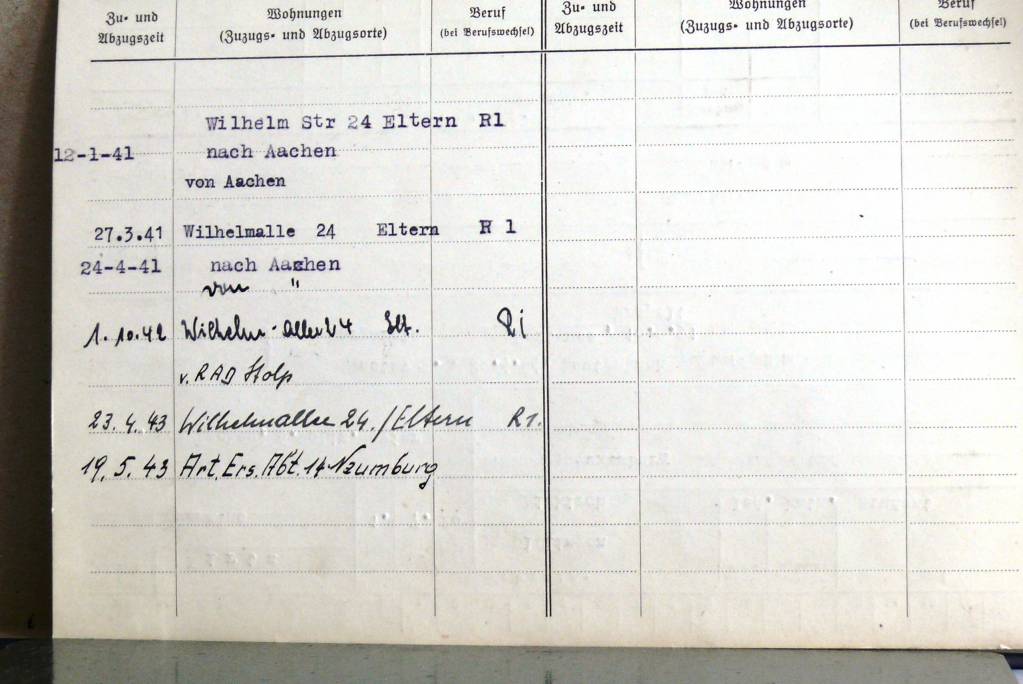 Zu- und Abzugszeit
Wohnungen
(Zuzugs- und Abzugsorte)
Beruf
(bei Berufswechsel)
Zu- und Abzugszeit
Wohnungen
(Zuzugs- und Abzugsorte)
Beruf
(bei Berufswechsel)
Wilhelm Str 24 Eltern R1
12-1-41 nach Aachen
von Aachen
27.3.41 Wilhelmalle 24 Eltern R 1
24-4-41 nach Aachen
von "
1.10.42 Wilhelm-Allee 24 Elt. Ri
v. RAD Stolp
23.4.43 Wilhelmallee 24./Eltern R1.
19.5.43 Art. Ers. Abt. 14 Naumburg